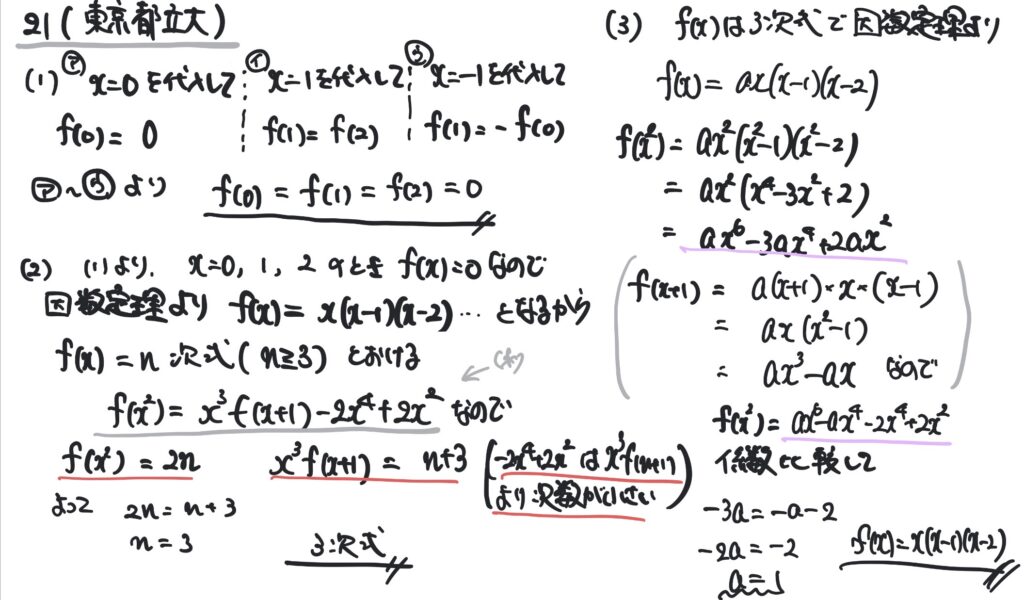 21(東京都立大)
(1) ㋐ x=0を代入して ㋑ x=1を代入して ㋒ x=-1を代入して
f(0)=0 f(1)=f(2) f(1)=-f(0)
㋐~㋒より f(0)=f(1)=f(2)=0
(2) (1)より、x=0, 1, 2のとき f(x)=0なので
因数定理より f(x)=x(x-1)(x-2)… となるから
f(x)=n次式(n≧3)とおける
f(x²)=x³f(x+1)-2x⁴+2x² なので
f(x²)=2n x³f(x+1)=n+3 (-2x⁴+2x²はx³f(x+1)
より次数が小さい)
よって 2n=n+3
n=3 3次式
(3) f(x)は3次式で因数定理より
f(x)=ax(x-1)(x-2)
f(x²)=ax²(x²-1)(x²-2)
=ax²(x⁴-3x²+2)
=ax⁶-3ax⁴+2ax²
(f(x+1)=a(x+1)・x・(x-1)
=ax(x²-1)
=ax³-ax なので)
f(x²)=ax⁶-ax⁴-2x⁴+2x²
係数比較して
-3a=-a-2
-2a=-2
a=1 f(x)=x(x-1)(x-2)